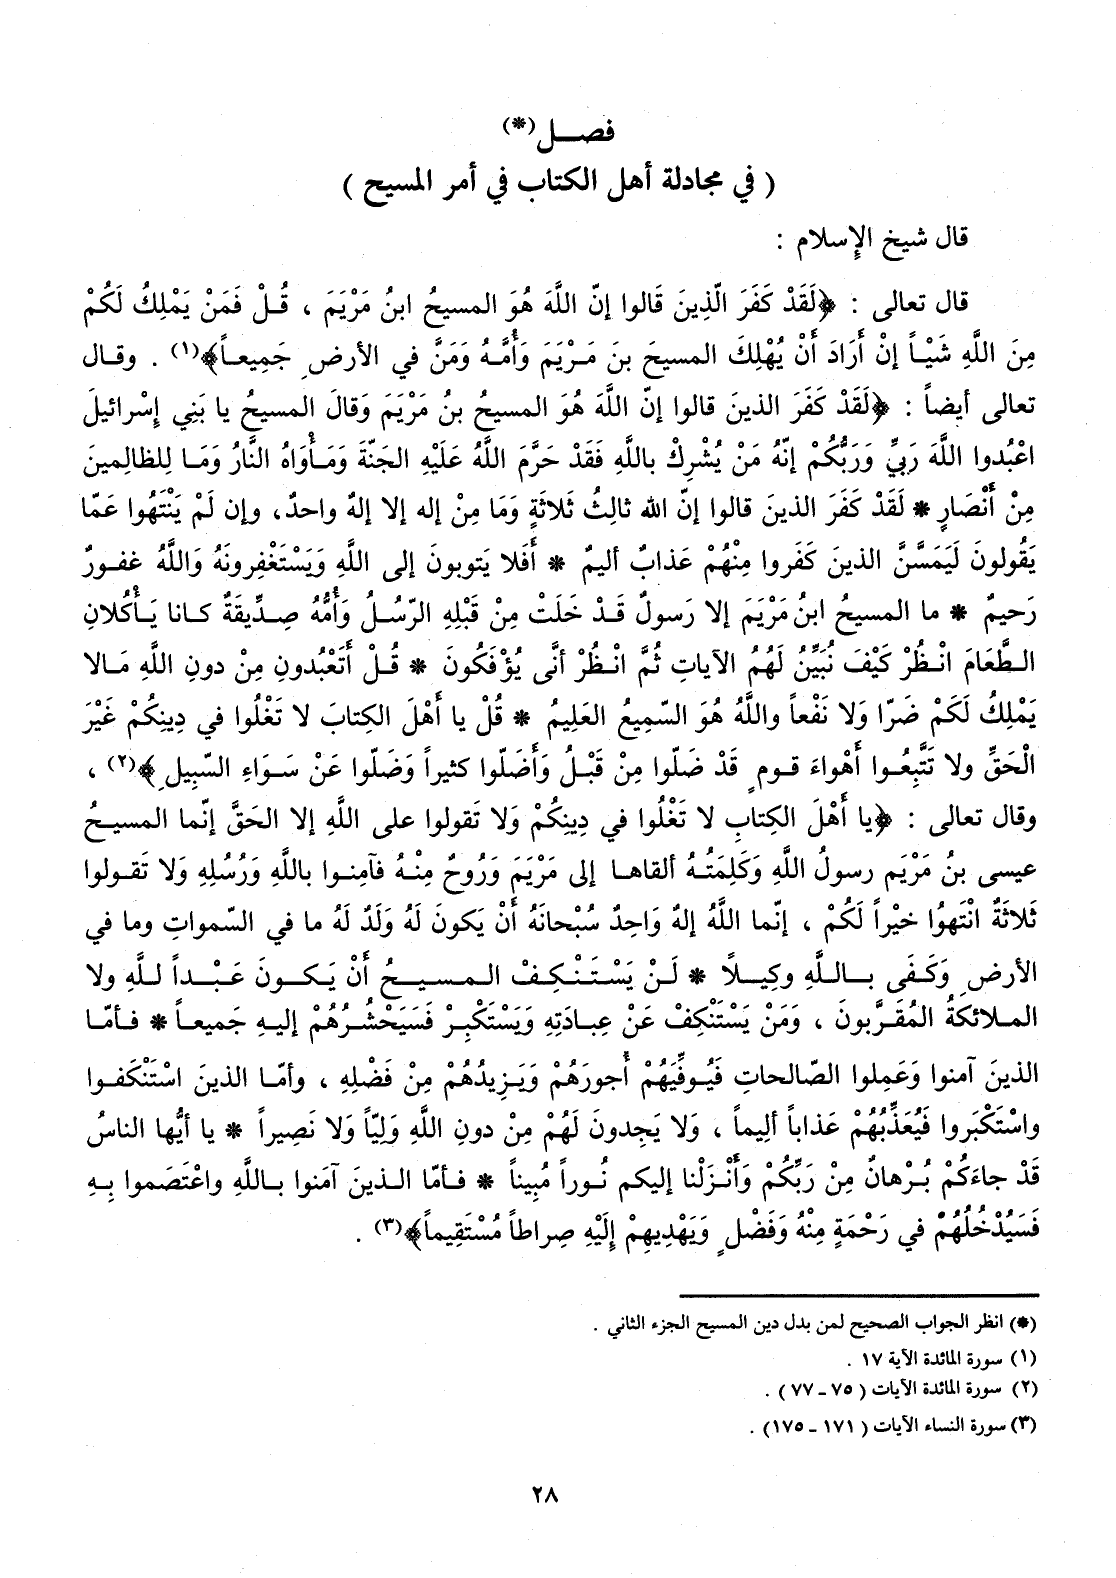 فصـــل(*)
( في مجادلة أهل الكتاب في أمر المسيح )
قال شيخ الإسلام :
قال تعالى : ﴿لَقَدْ كَفَرَ الّذِينَ قَالوا إنّ اللَّهَ هُوَ المسيحُ ابنُ مَرْيَمَ ، قُـلْ فَمَنْ يَمْلِكُ لَكُمْ
مِنَ اللَّهِ شَيْـاً إنْ أَرَادَ أَنْ يُهْلِكَ المسيحَ بنَ مَـرْيَمَ وَأُمَّـهُ وَمَنَّ في الأرضِ جَمِيعـاً﴾(١) . وقـال
تعالى أيضـاً : ﴿لَقَدْ كَفَرَ الذينَ قالوا إنّ اللَّهَ هُوَ المسيحُ بنُ مَرْيَمَ وَقالَ المسيحُ يا بَنِي إسْرائيلَ
اعْبُدوا اللَّهَ رَبِيِّ وَرَبُّكُمْ إنّهُ مَنْ يُشْرِكْ باللَّهِ فَقَدْ حَرَّمَ اللَّهُ عَلَيْهِ الجَنّةَ وَمَـأْوَاهُ النَّارُ وَمَا لِلظالِمينَ
مِنْ أَنْصَارٍ * لَقَدْ كَفَرَ الذينَ قالوا إنّ الله ثالِثُ ثَلاثَةٍ وَمَا مِنْ إله إلا إلهٌ واحدٌ، وإن لَمْ يَنْتَهُوا عَمّا
يَقُولونَ لَيَمَسَّنَّ الذينَ كَفَروا مِنْهُمْ عَذابٌ أليمٌ * أَفَلا يَتوبونَ إلى اللَّهِ وَيَسْتَغْفِرونَهُ وَاللَّهُ غفـورٌ
رَحيمٌ * ما المسيحُ ابنُ مَرْيَمَ إلا رَسولٌ قَـدْ خَلَتْ مِنْ قَبْلِهِ الرّسُلُ وَأُمُّهُ صِـدِّيقَةٌ كـانا يَـأْكُلانِ
الـطَّعَامَ انْـظُرْ كَيْفَ نُبَيِّنُ لَهُمُ الآياتِ ثُمَّ انْـظُرْ أنَّى يُؤْفَكُونَ * قُـلْ أَتَعْبُدونِ مِنْ دونِ اللَّهِ مَـالا
يَمْلِكُ لَكَمْ ضَرّا وَلا نَفْعاً واللَّهُ هُوَ السّمِيعُ العَلِيمُ * قُلْ يا أَهْلَ الكِتابَ لا تَغْلُوا في دِينِكُمْ غَيْرَ
الْحَقِّ ولا تَتَّبِعُـوا أَهْواءَ قـومٍ قَدْ ضَلّوا مِنْ قَبْـلُ وَأَضَلّوا كثيراً وَضَلّوا عَنْ سَـوَاءِ السّبِيلِ﴾(٢) ،
وقال تعالى : ﴿يا أَهْلَ الكِتابِ لا تَغْلُوا في دِينِكُمْ وَلا تَقولوا على اللَّهِ إلا الحَقَّ إنّما المسيـحُ
عيسى بنُ مَرْيَم رسولُ اللَّهِ وَكَلِمَتُـهُ ألقاهـا إلى مَرْيَمَ وَرُوحٌ مِنْـهُ فآمِنـوا باللَّهِ وَرُسُلِهِ وَلا تَقـولوا
ثَلاثَةٌ انْتَهُوا خيْراً لَكُمْ ، إنّما اللَّهُ إلهٌ وَاحِدٌ سُبْحانَهُ أَنْ يَكونَ لَهُ وَلَدٌ لَهُ ما في السّمواتِ وما في
الأرضِ وَكَـفَى بـاللَّهِ وكِيـلاً * لَـنْ يَسْـتَـنْـكِـفْ الـمـسيـحُ أَنْ يَـكـونَ عَـبْـداً للَّهِ ولا
المـلائكةُ المُقَرَّبونَ ، وَمَنْ يَسْتَنْكِفْ عَنْ عِبادَتِهِ وَيَسْتَكبِرْ فَسَيَحْشُـرُهُمْ إليهِ جَميعـاً * فـأمّـا
الذينَ آمنوا وَعَمِلوا الصّالحاتِ فَيُـوفِّيَهُمْ أُجورَهُمْ وَيَـزِيدُهُمْ مِنْ فَضْلِهِ ، وأمّـا الذينَ اسْتَنْكَفـوا
واسْتَكْبَروا فَيُعَذِّبُهُمْ عَذاباً أليماً ، وَلا يَجِدونَ لَهُمْ مِنْ دونِ اللَّهِ وَلِيّاً وَلا نَصِيراً * يا أيّها الناسُ
قَدْ جاءَكُمْ بُـرْهانٌ مِنْ رَبِّكُمْ وَأَنْـزَلْنا إليكم نُـوراً مُبِيناً * فـأمّا الـذينَ آمَنوا بـاللَّهِ واعْتَصَموا بِـهِ
فَسَيُدْخُلُهُمْ في رَحْمَةٍ مِنْهُ وَفَضْلٍ وَيَهْدِيهِمْ إلَيْهِ صِراطاً مُسْتَقِيماً﴾(٣) .
(*) انظر الجواب الصحيح لمن بدل دين المسيح الجزء الثاني .
(١) سورة المائدة الآية ١٧ .
(٢) سورة المائدة الآيات ( ٧٥ ـ ٧٧ ) .
(٣) سورة النساء الآيات ( ١٧١ ـ ١٧٥) .
٢٨